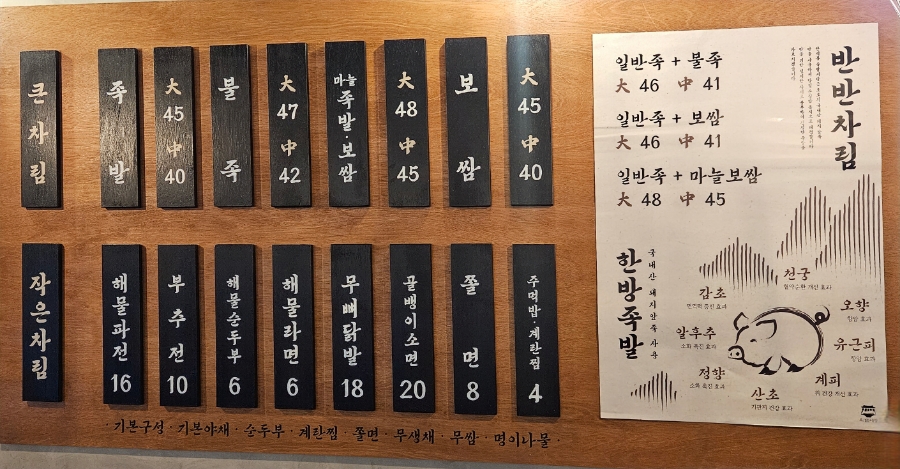 큰차림
족발
大 45
中 40
불족
大 47
中 42
마늘 족발·보쌈
大 48
中 45
보쌈
大 45
中 40
작은차림
해물파전 16
부추전 10
해물순두부 6
해물라면 6
무뼈닭발 18
골뱅이소면 20
쫄면 8
주먹밥·계란찜 4
·기본구성·기본야채·순두부·계란찜·쫄면·무생채·무쌈·명이나물·
반반차림
일반족 + 불족
大 46 中 41
일반족 + 보쌈
大 46 中 41
일반족 + 마늘보쌈
大 48 中 45
한방족발
국내산 돼지앞족 사용
천궁
혈액순환 개선 효과
감초
오향
항암 효과
알후추
소화 촉진 효과
유근피
항암 효과
정향
소화 촉진 효과
계피
산초
기관지 건강 효과